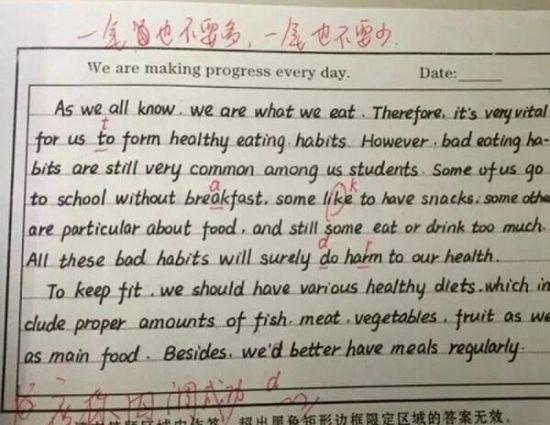 一定也不要多，一定也不要少.
We are making progress every day. Date:
As we all know, we are what we eat. Therefore, it's very vital
t
for us to form healthy eating habits. However, bad eating ha-
bits are still very common among us students. Some of us go
a k
to school without breakfast, some like to have snacks, some othe
are particular about food, and still some eat or drink too much.
d r
All these bad habits will surely do harm to our health.
To keep fit, we should have various healthy diets, which in
clude proper amounts of fish, meat, vegetables, fruit as we
as main food. Besides, we'd better have meals regularly.
成功 d
超出黑色矩形边框限定区域的答案无效。